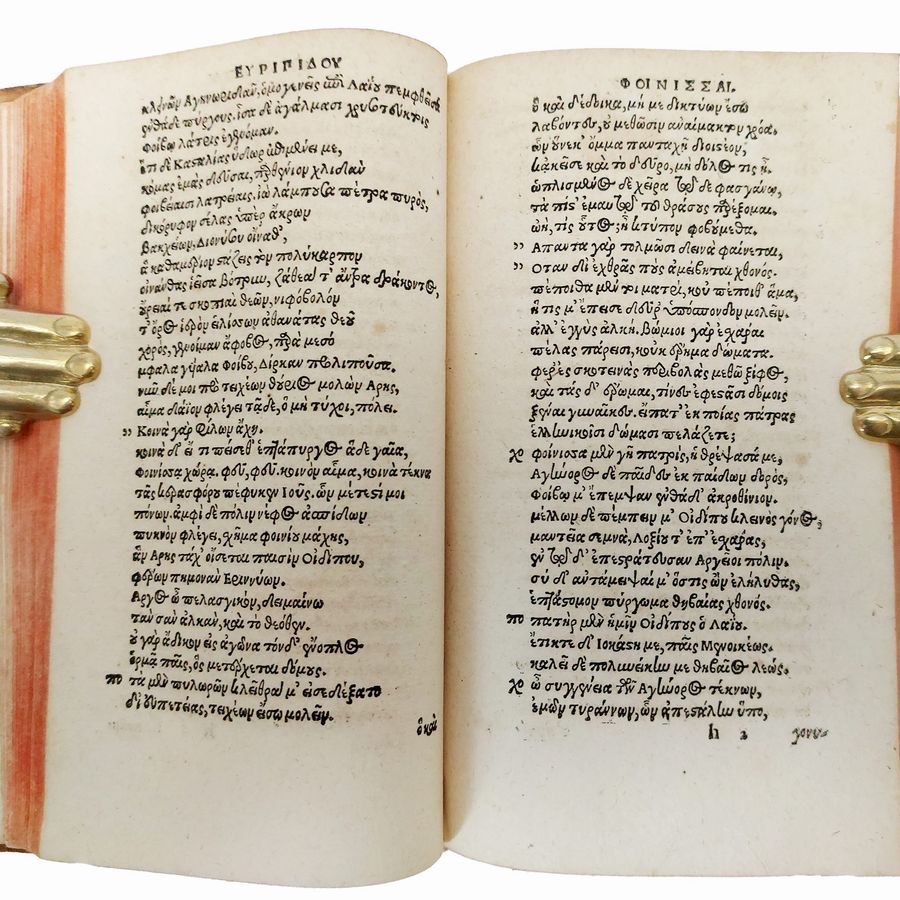 ΕΥΡΙΠΙΔΟΥ
κλεινῶν Αγηνοριδᾶν, ὁμογενεῖς ἐπὶ Λαΐου πεμφθεῖσα
ἐνθάδε πύργους. ἴσα δὲ ἀγάλμασι χρυσοτεύκτοις
φοίβῳ λάτρις ἐγενόμαν.
ἔτι δὲ Κασαλίας ὕδωρ ἐπιμένει με,
κόμας ἐμὰς δεῦσαι, παρθένιον χλιδὰν
φοιβείαισι λατρείαις, ἰὼ λάμπουσα πέτρα πυρὸς,
δικόρυφον σέλας ὑπὲρ ἄκρων
Βακχείων, Διονύσου οἰνάθ',
ἃ καθαμέριον στάζεις τὸν πολύκαρπον
οἰνάνθας ἱεῖσα βότρυν, ζάθεά τ' ἄντρα δράκοντος,
οὔρειαί τε σκοπιαὶ θεῶν, νιφοβολόν
τ' ὄρος ἱερὸν ἑλίσσων ἀθανάτας θεοῦ
χορὸς, γενοίμαν ἄφοβος, παρὰ μεσό
μφαλα γύαλα Φοίβου, Δίρκαν προλιποῦσα.
νῦν δέ μοι πρὸ τειχέων θούριος μολὼν Αρης,
αἷμα δάϊον φλέγει τᾷδε, ὃ μὴ τύχοι, πόλει.
,, Κοινὰ γὰρ φίλων ἄχη.
κοινὰ δ' εἴ τι πείσεθ' ἑπτάπυργος ἅδε γαῖα,
φοινίσσᾳ χώρᾳ. φεῦ, φεῦ. κοινὸν αἷμα, κοινὰ τέκνα
τᾶς κερασφόρου πέφυκεν Ιοῦς. ὧν μέτεστί μοι
πόνων. ἀμφὶ δὲ πόλιν νέφος ἀσπίδων
πυκνὸν φλέγει, χῆμα φοινίου μάχης,
ἃν Αρης τάχ' οἴσεται παισὶν Οἰδίπου,
φέρων πημονὰν Εριννύων.
Αργος ὦ πελασγικὸν, δειμαίνω
τὰν σὰν ἀλκὰν, καὶ τὸ θεόθεν.
οὐ γὰρ ἄδικον εἰς ἀγῶνα τόνδ' ἔνοπλος
ὁρμᾷ παῖς, ὃς μετέρχεται δόμους.
πο τὰ μὲν πυλωρῶν κλεῖθρά μ' εἰσεδέξατο
δι' εὐπετείας, τειχέων ἔσω μολεῖν.
ὃ καὶ
ΦΟΙΝΙΣΣΑΙ.
ὃ καὶ δέδοικα, μή με δικτύων ἔσω
λαβόντες, οὐ μεθῶσιν ἀναίμακτον χρόα.
ὧν οὕνεκ' ὄμμα πανταχῆ διοιστέον,
κἀκεῖσε καὶ τὸ δεῦρο, μὴ δόλος τις ᾖ.
ὡπλισμένος δὲ χεῖρα τῷδε φασγάνῳ,
τὰ πίς' ἐμαυτῷ τοῦ θράσους παρέξομαι.
ὠὴ, τίς οὗτος; ἢ κτύπον φοβούμεθα.
,, Απαντα γὰρ τολμῶσι δεινὰ φαίνεται,
,, Οταν δι' ἐχθρᾶς ποὺς ἀμείβηται χθονός.
πέποιθα μέν τοι ματρὶ, κοὐ πέποιθ' ἅμα,
ἥτις μ' ἔπεισε δεῦρ' ὑπόσπονδον μολεῖν.
ἀλλ' ἐγγὺς ἀλκή. βώμιοι γὰρ ἐσχάραι
πέλας πάρεισι, κοὐκ ἔρημα δώματα.
φέρ' ἐς σκοτεινὰς περιβολὰς μεθῶ ξίφος,
καὶ τάς δ' ἔρωμαι, τίνες ἐφεστᾶσι δόμοις
ξέναι γυναῖκες. εἴπατ' ἐκ ποίας πάτρας
ἑλληνικοῖσι δώμασι πελάζετε;
χο φοίνισσα μὲν γῆ πατρὶς, ἡ θρέψασά με,
Αγήνορος δὲ παῖδες ἐκ παίδων δορὸς,
φοίβῳ μ' ἔπεμψαν ἐνθάδ' ἀκροθίνιον.
μέλλων δὲ πέμπειν μ' Οἰδίπου κλεινὸς γόνος,
μαντεῖα σεμνὰ, Λοξίου τ' ἐπ' ἐσχάρας,
ἐν τῷδ' ἐπεστράτευσαν Αργεῖοι πόλιν.
σὺ δ' αὐτάμειψαί μ' ὅστις ὢν ἐλήλυθας,
ἑπτάστομον πύργωμα θηβαίας χθονός.
πο πατὴρ μὲν ἡμῖν Οἰδίπους ὁ Λαΐου.
ἔτικτε δ' Ιοκάστη με, παῖς Μενοικέως.
καλεῖ δὲ πολυνείκην με θηβαῖος λεώς.
χο ὦ συγγένεια τῶν Αγήνορος τέκνων,
ἐμῶν τυράννων, ὧν ἀπεστάλην ὕπο,
h 2 γονυ-